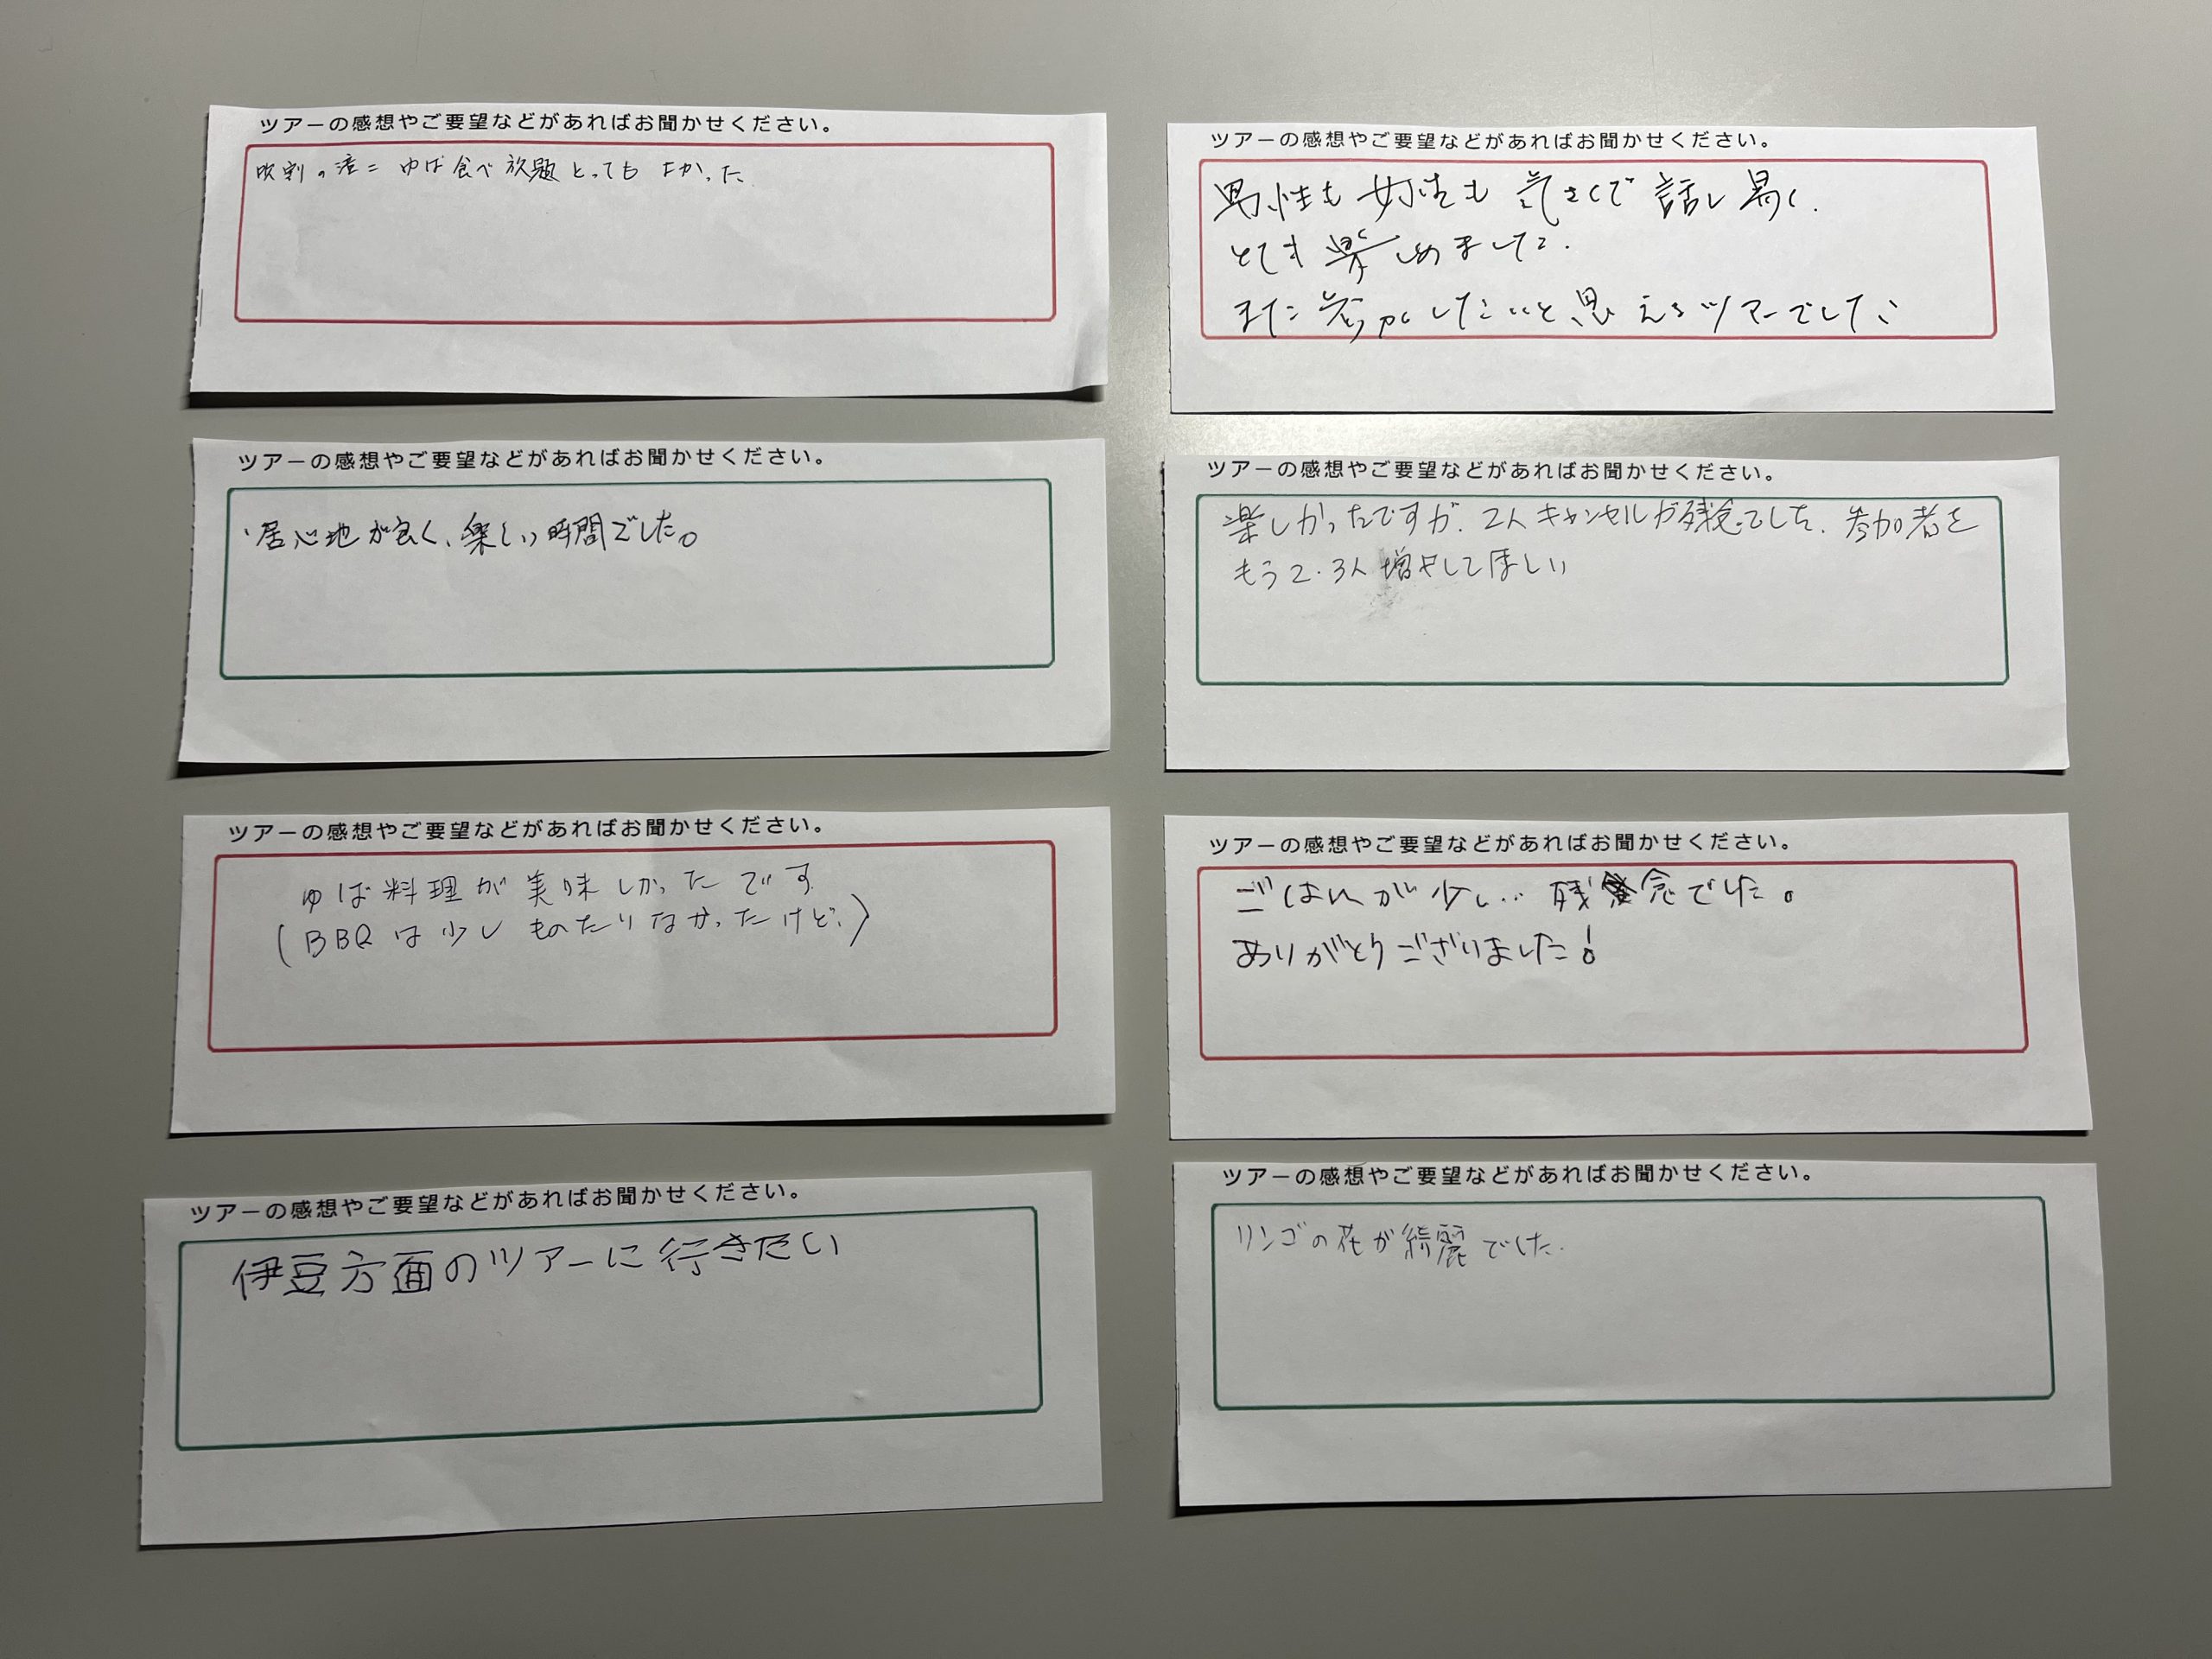 ツアーの感想やご要望などがあればお聞かせください。
吹割の滝 ゆば食べ放題とってもよかった
ツアーの感想やご要望などがあればお聞かせください。
男性も女性も気さくで話し易く.
とても楽しめました.
また参加したいと思えるツアーでした
ツアーの感想やご要望などがあればお聞かせください。
居心地が良く、楽しい時間でした。
ツアーの感想やご要望などがあればお聞かせください。
楽しかったですが.2人キャンセルが残念でした.参加者を
もう2.3人増やしてほしい
ツアーの感想やご要望などがあればお聞かせください。
ゆば料理が美味しかったです
(BBQは少しものたりなかったけど、)
ツアーの感想やご要望などがあればお聞かせください。
ごはんが少し…残念でした。
ありがとうございました!
ツアーの感想やご要望などがあればお聞かせください。
伊豆方面のツアーに行きたい
ツアーの感想やご要望などがあればお聞かせください。
リンゴの花が綺麗でした.